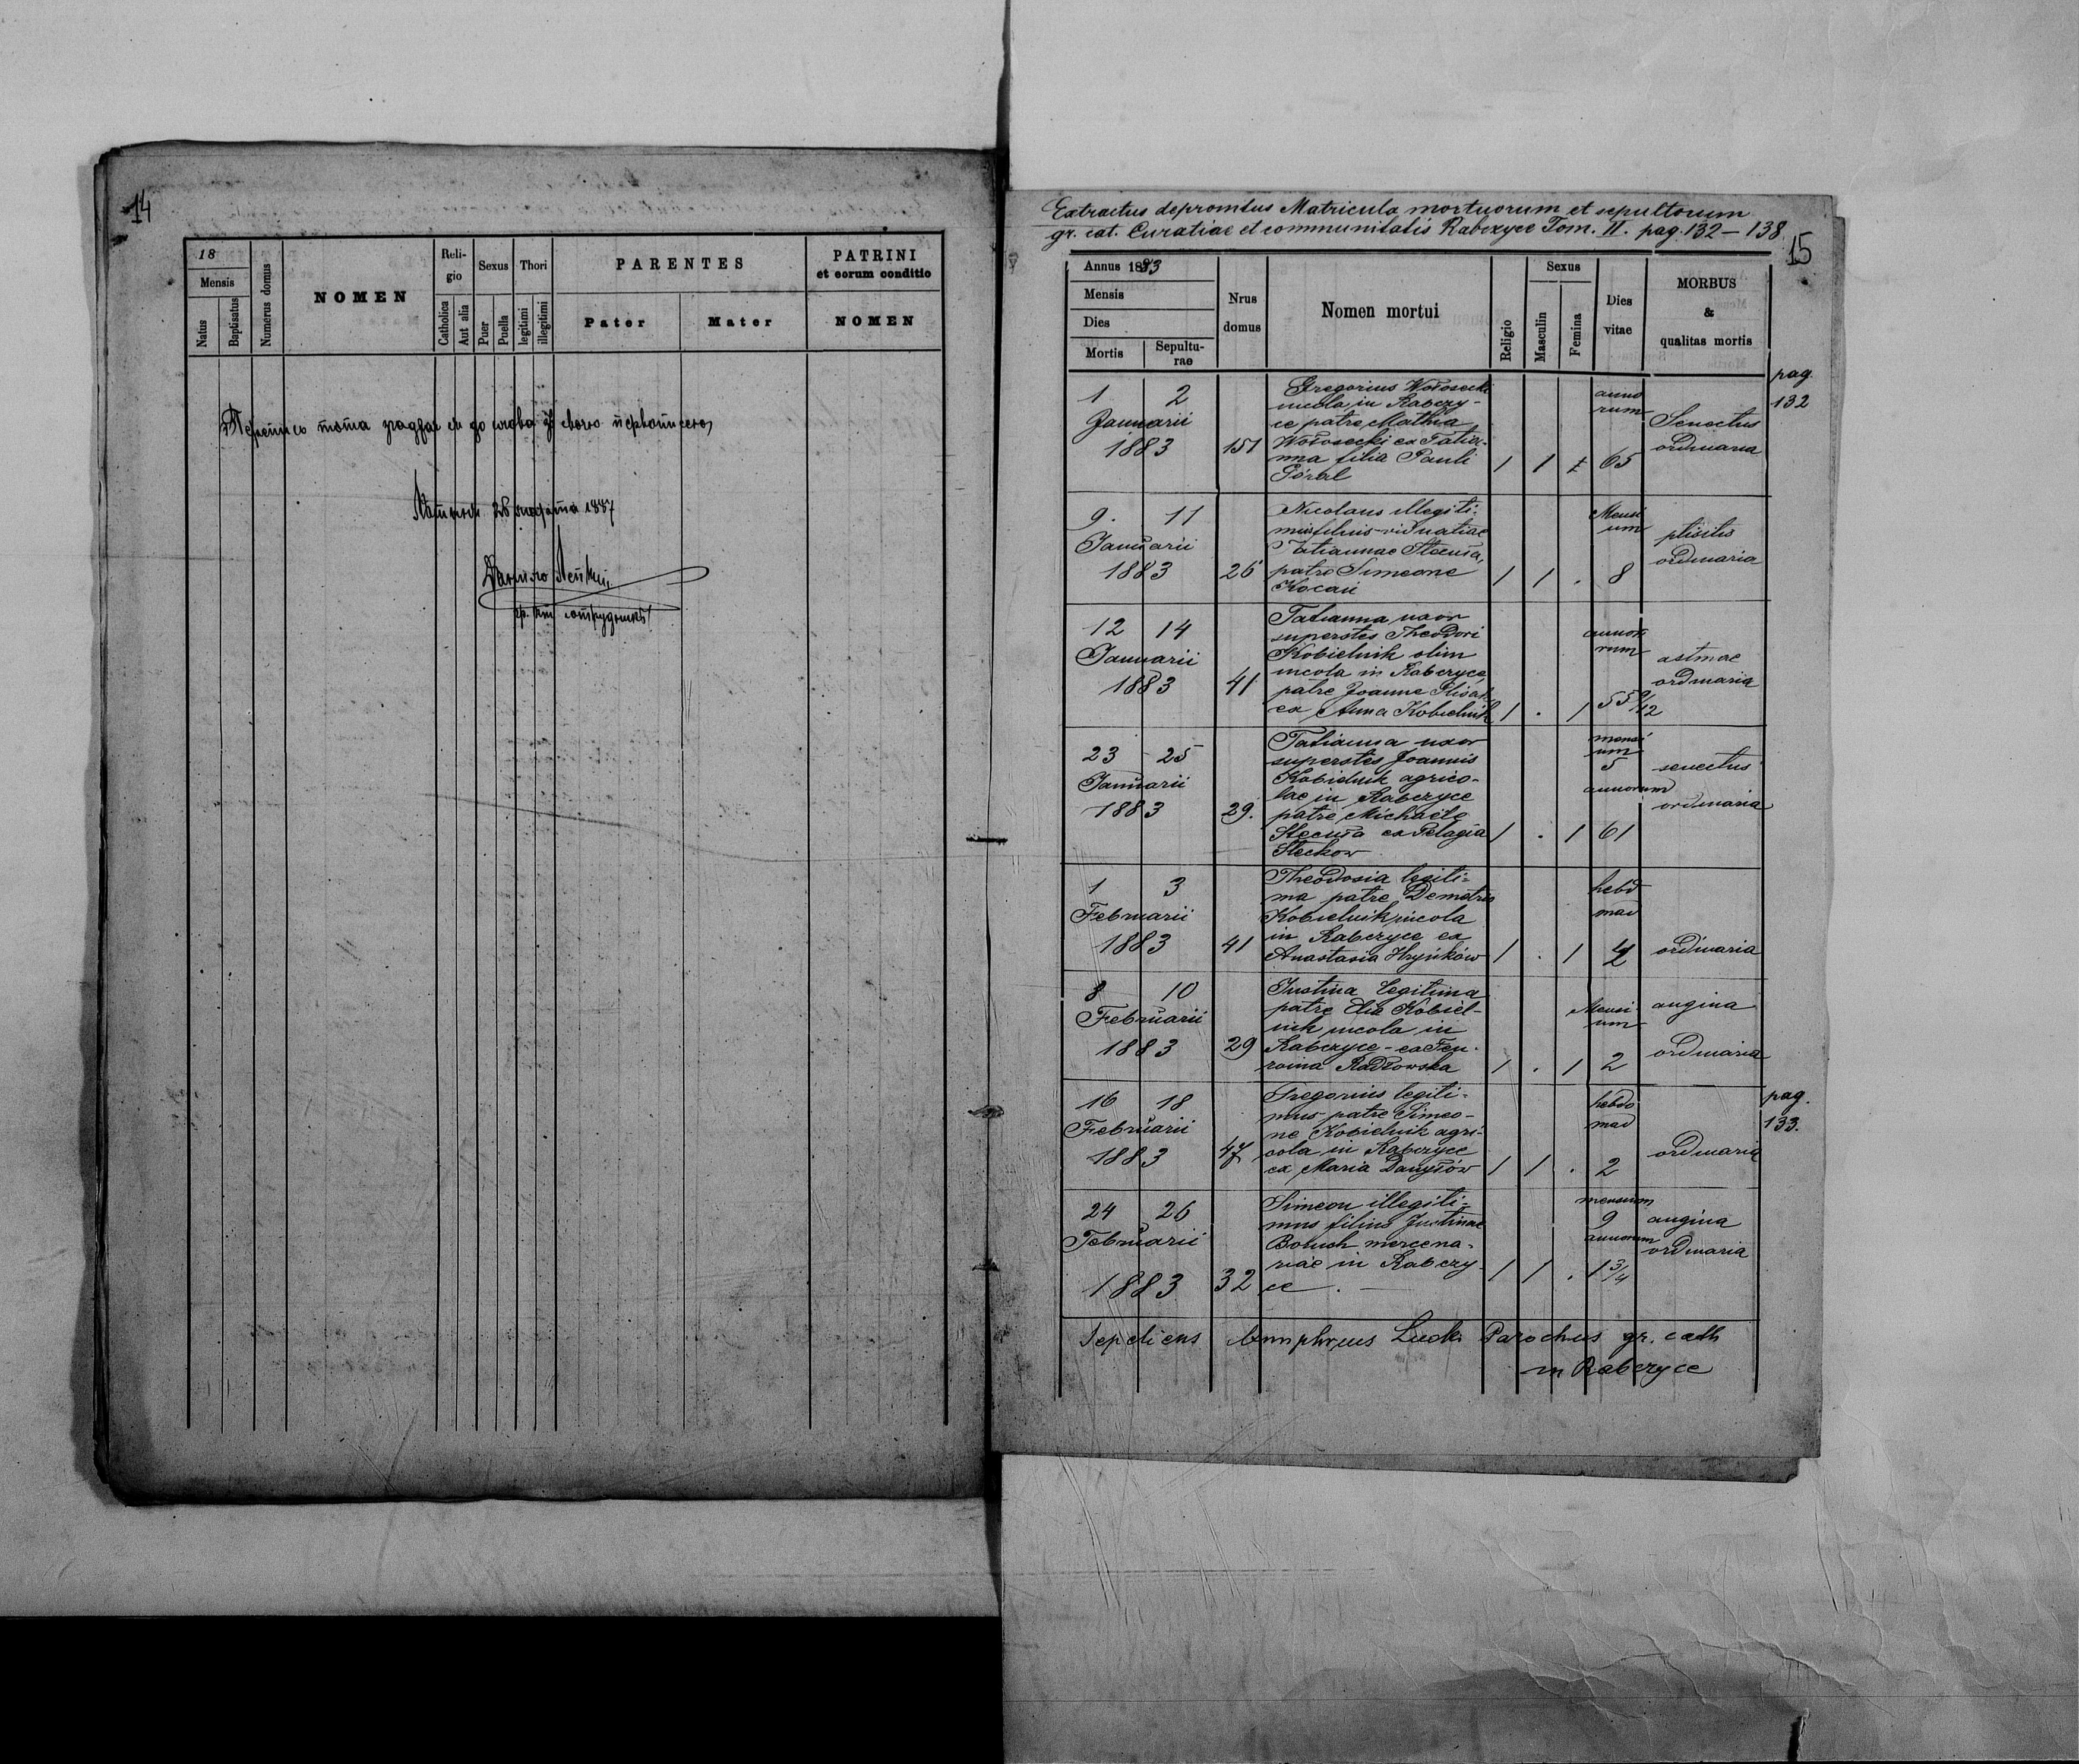 14
18
Mensis
Natus
Baptisatus
Numerus domus
NOMEN
Reli-
gio
Catholica
Aut alia
Sexus
Puer
Puella
Thori
legitimi
illegitimi
PARENTES
Pater
Mater
PATRINI
et eorum conditio
NOMEN
до слова
1887
Extractus depromtus Matricula mortuorum et sepultorum
gr. cat. Curatiae et communitatis Rabczyce Tom. II. pag. 132 — 138
15
Annus 1883
Mensis
Dies
Mortis
Sepultu-
rae
Nrus
domus
Nomen mortui
Religio
Sexus
Masculin
Femina
Dies
vitae
MORBUS
&
qualitas mortis
pag.
132
1 2
Januarii
1883
151
Gregorius Wołosecki
incola in Rabczy-
ce patre Mathia
Wołosecki ex Tatia-
nna filia Pauli
Góral
1 1
anno
rum
65
Senectus
ordinaria
9. 11
Januarii
1883
26
Nicolaus illegiti-
mus filius viduatiae
Tatiannae Stecuła,
patre Simeone
Kocan
1 1 .
Mensi
um
8
ptisitis
ordinaria
12 14
Januarii
1883
41
Tatianna uxor
superstes Theodori
Kobielnik olim
incola in Rabczyce
patre Joanne
ex Anna Kobielnik
1 . 1
anno
rum
55 9/12
astmae
ordinaria
23 25
Januarii
1883
29.
Tatianna uxor
superstes Joannis
Kobielnik agrico-
lae in Rabczyce
patre Michaele
Stecuła ex Pelagia
Steckow
1 . 1
mensi
um
5
annorum
61
senectus
ordinaria
1 3
Februarii
1883
41
Theodosia legiti-
ma patre Demetrio
Kobielnik incola
in Rabczyce ex
Anastasia Hryńków
1 . 1
hebd
mad
2
ordinaria
8 10
Februarii
1883
29
Justina legitima
patre Elia Kobiel-
nik incola in
Rabczyce - ex Feu-
roina Radłowska
1 . 1
Mensi
um
2
angina
ordinaria
pag.
133.
16 18
Februarii
1883
47
Gregorius legiti-
mus patre Simeo-
ne Kobielnik agri-
cola in Rabczyce
ex Maria Danyłów
1 1 .
hebdo
mad
2
ordinaria
24 26
Februarii
1883
32
Simeon illegiti-
mus filius Justinae
Boluch mercena-
riae in Rabczy-
ce . —
1 1 .
mensium
9
annorum
1 3/4
angina
ordinaria
Sepeliens Onuphrius Lucki Parochus gr. cath
in Rabczyce